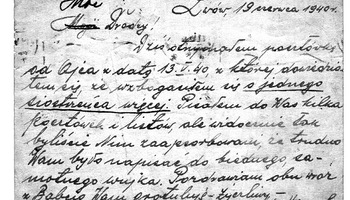 Moi
Lwów, 19 czerwca 1940 r.
Moji Drodzy!
Dziś otrzymałem pocztówkę
od Ojca z datą 13.V.40, z której dowiedzia-
łem się, że wzbogaciłem się o jednego
siostrzeńca więcej. Pisałem do Was kilka
pocztówek i listów, ale widocznie tak
byliście Nim zaabsorbowani, że trudno
Wam było napisać do biednego, sa-
motnego wujka. Pozdrawiam obu wraz
z Babcią Wam gratuluję